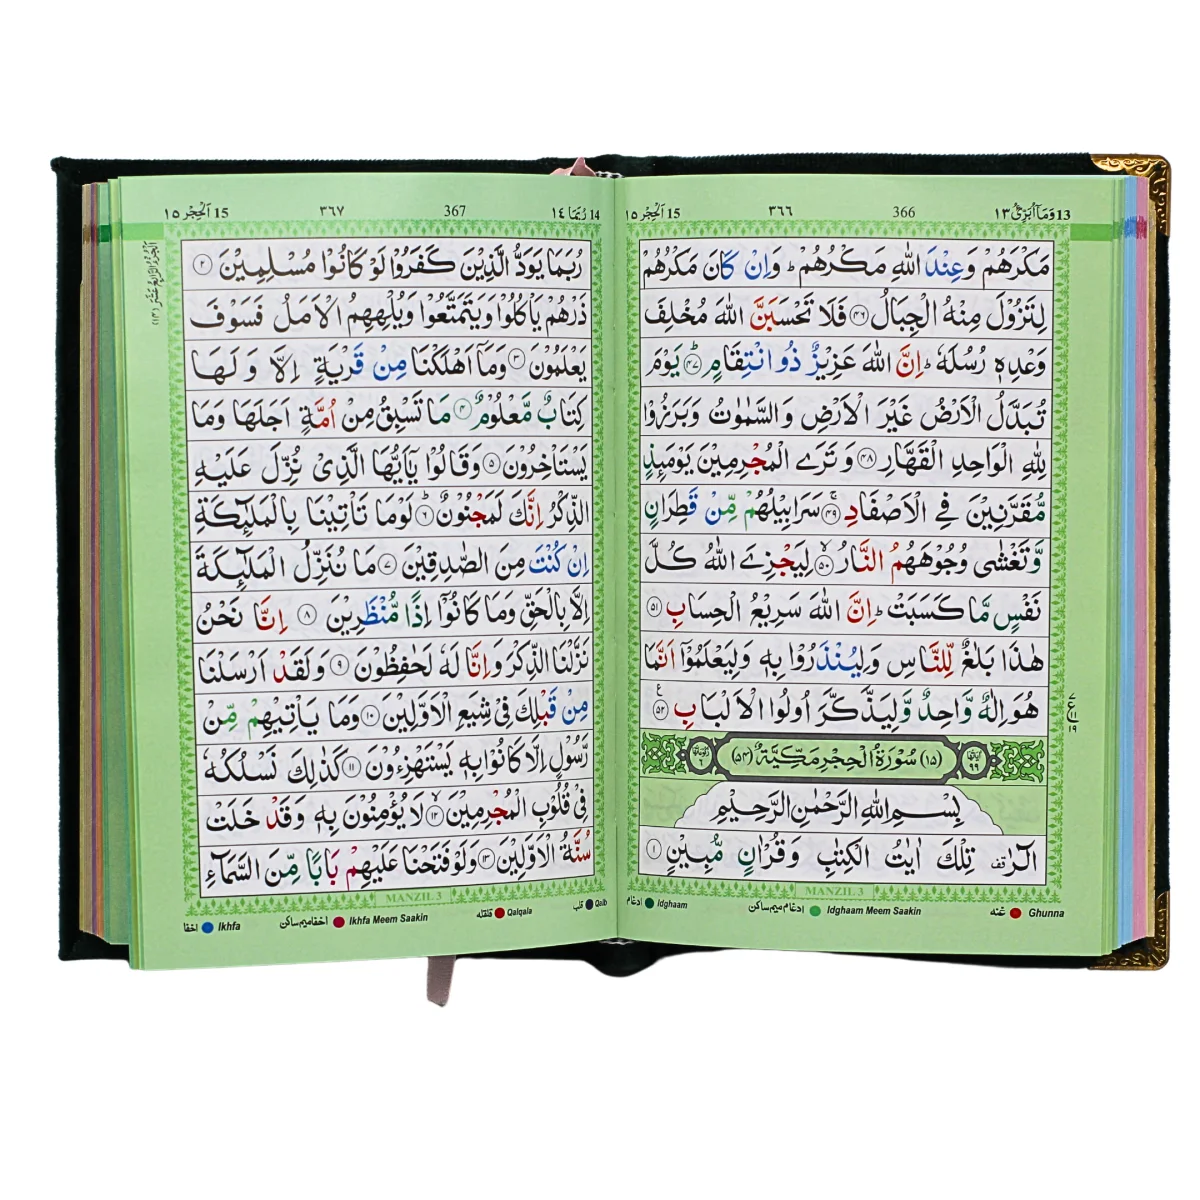 13 وَمَآ اُبَرِّئُ ١٣
366
٣٦٦
15 اَلْحِجْر ١٥
مَكْرَهُمْ وَعِنْدَ اللّٰهِ مَكْرُهُمْ ؕ وَاِنْ كَانَ مَكْرُهُمْ
لِتَزُوْلَ مِنْهُ الْجِبَالُ ﴿٤٦﴾ فَلَا تَحْسَبَنَّ اللّٰهَ مُخْلِفَ
وَعْدِهٖ رُسُلَهٗ ؕ اِنَّ اللّٰهَ عَزِيْزٌ ذُو انْتِقَامٍ ﴿٤٧﴾ يَوْمَ
تُبَدَّلُ الْاَرْضُ غَيْرَ الْاَرْضِ وَالسَّمٰوٰتُ وَبَرَزُوْا
لِلّٰهِ الْوَاحِدِ الْقَهَّارِ ﴿٤٨﴾ وَتَرَى الْمُجْرِمِيْنَ يَوْمَىِٕذٍ
مُّقَرَّنِيْنَ فِى الْاَصْفَادِ ﴿٤٩﴾ سَرَابِيْلُهُمْ مِّنْ قَطِرَانٍ
وَّتَغْشٰى وُجُوْهَهُمُ النَّارُ ﴿٥٠﴾ لِيَجْزِىَ اللّٰهُ كُلَّ
نَفْسٍ مَّا كَسَبَتْ ؕ اِنَّ اللّٰهَ سَرِيْعُ الْحِسَابِ ﴿٥١﴾
هٰذَا بَلٰغٌ لِّلنَّاسِ وَلِيُنْذَرُوْا بِهٖ وَلِيَعْلَمُوْۤا اَنَّمَا
هُوَ اِلٰهٌ وَّاحِدٌ وَّلِيَذَّكَّرَ اُولُوا الْاَلْبَابِ ﴿٥٢﴾
ع
٧
١١
١٩
اٰيَاتُهَا ٩٩ (١٥) سُوْرَةُ الْحِجْرِ مَكِّيَّةٌ (٥٤) رُكُوْعَاتُهَا ٦
بِسْمِ اللّٰهِ الرَّحْمٰنِ الرَّحِيْمِ
الٓرٰ قف تِلْكَ اٰيٰتُ الْكِتٰبِ وَقُرْاٰنٍ مُّبِيْنٍ ﴿١﴾
MANZIL 3
Ghunna غنه
Idghaam Meem Saakin ادغام میم ساکن
Idghaam ادغام
14 رُبَمَا ١٤
367
٣٦٧
15 اَلْحِجْر ١٥
اَلْجُزْءُ الرَّابِعُ عَشَرَ (١٤)
رُبَمَا يَوَدُّ الَّذِيْنَ كَفَرُوْا لَوْ كَانُوْا مُسْلِمِيْنَ ﴿٢﴾
ذَرْهُمْ يَاْكُلُوْا وَيَتَمَتَّعُوْا وَيُلْهِهِمُ الْاَمَلُ فَسَوْفَ
يَعْلَمُوْنَ ﴿٣﴾ وَمَاۤ اَهْلَكْنَا مِنْ قَرْيَةٍ اِلَّا وَلَهَا
كِتَابٌ مَّعْلُوْمٌ ﴿٤﴾ مَا تَسْبِقُ مِنْ اُمَّةٍ اَجَلَهَا وَمَا
يَسْتَاْخِرُوْنَ ﴿٥﴾ وَقَالُوْا يٰۤاَيُّهَا الَّذِىْ نُزِّلَ عَلَيْهِ
الذِّكْرُ اِنَّكَ لَمَجْنُوْنٌ ؕ ﴿٦﴾ لَوْمَا تَاْتِيْنَا بِالْمَلٰٓىِٕكَةِ
اِنْ كُنْتَ مِنَ الصّٰدِقِيْنَ ﴿٧﴾ مَا نُنَزِّلُ الْمَلٰٓىِٕكَةَ
اِلَّا بِالْحَقِّ وَمَا كَانُوْۤا اِذًا مُّنْظَرِيْنَ ﴿٨﴾ اِنَّا نَحْنُ
نَزَّلْنَا الذِّكْرَ وَاِنَّا لَهٗ لَحٰفِظُوْنَ ﴿٩﴾ وَلَقَدْ اَرْسَلْنَا
مِنْ قَبْلِكَ فِىْ شِيَعِ الْاَوَّلِيْنَ ﴿١٠﴾ وَمَا يَاْتِيْهِمْ مِّنْ
رَّسُوْلٍ اِلَّا كَانُوْا بِهٖ يَسْتَهْزِءُوْنَ ﴿١١﴾ كَذٰلِكَ نَسْلُكُهٗ
فِىْ قُلُوْبِ الْمُجْرِمِيْنَ ﴿١٢﴾ لَا يُؤْمِنُوْنَ بِهٖ وَقَدْ خَلَتْ
سُنَّةُ الْاَوَّلِيْنَ ﴿١٣﴾ وَلَوْ فَتَحْنَا عَلَيْهِمْ بَابًا مِّنَ السَّمَآءِ
MANZIL 3
Qalb قلب
Qalqala قلقله
Ikhfa Meem Saakin اخفا میم ساکن
Ikhfa اخفا